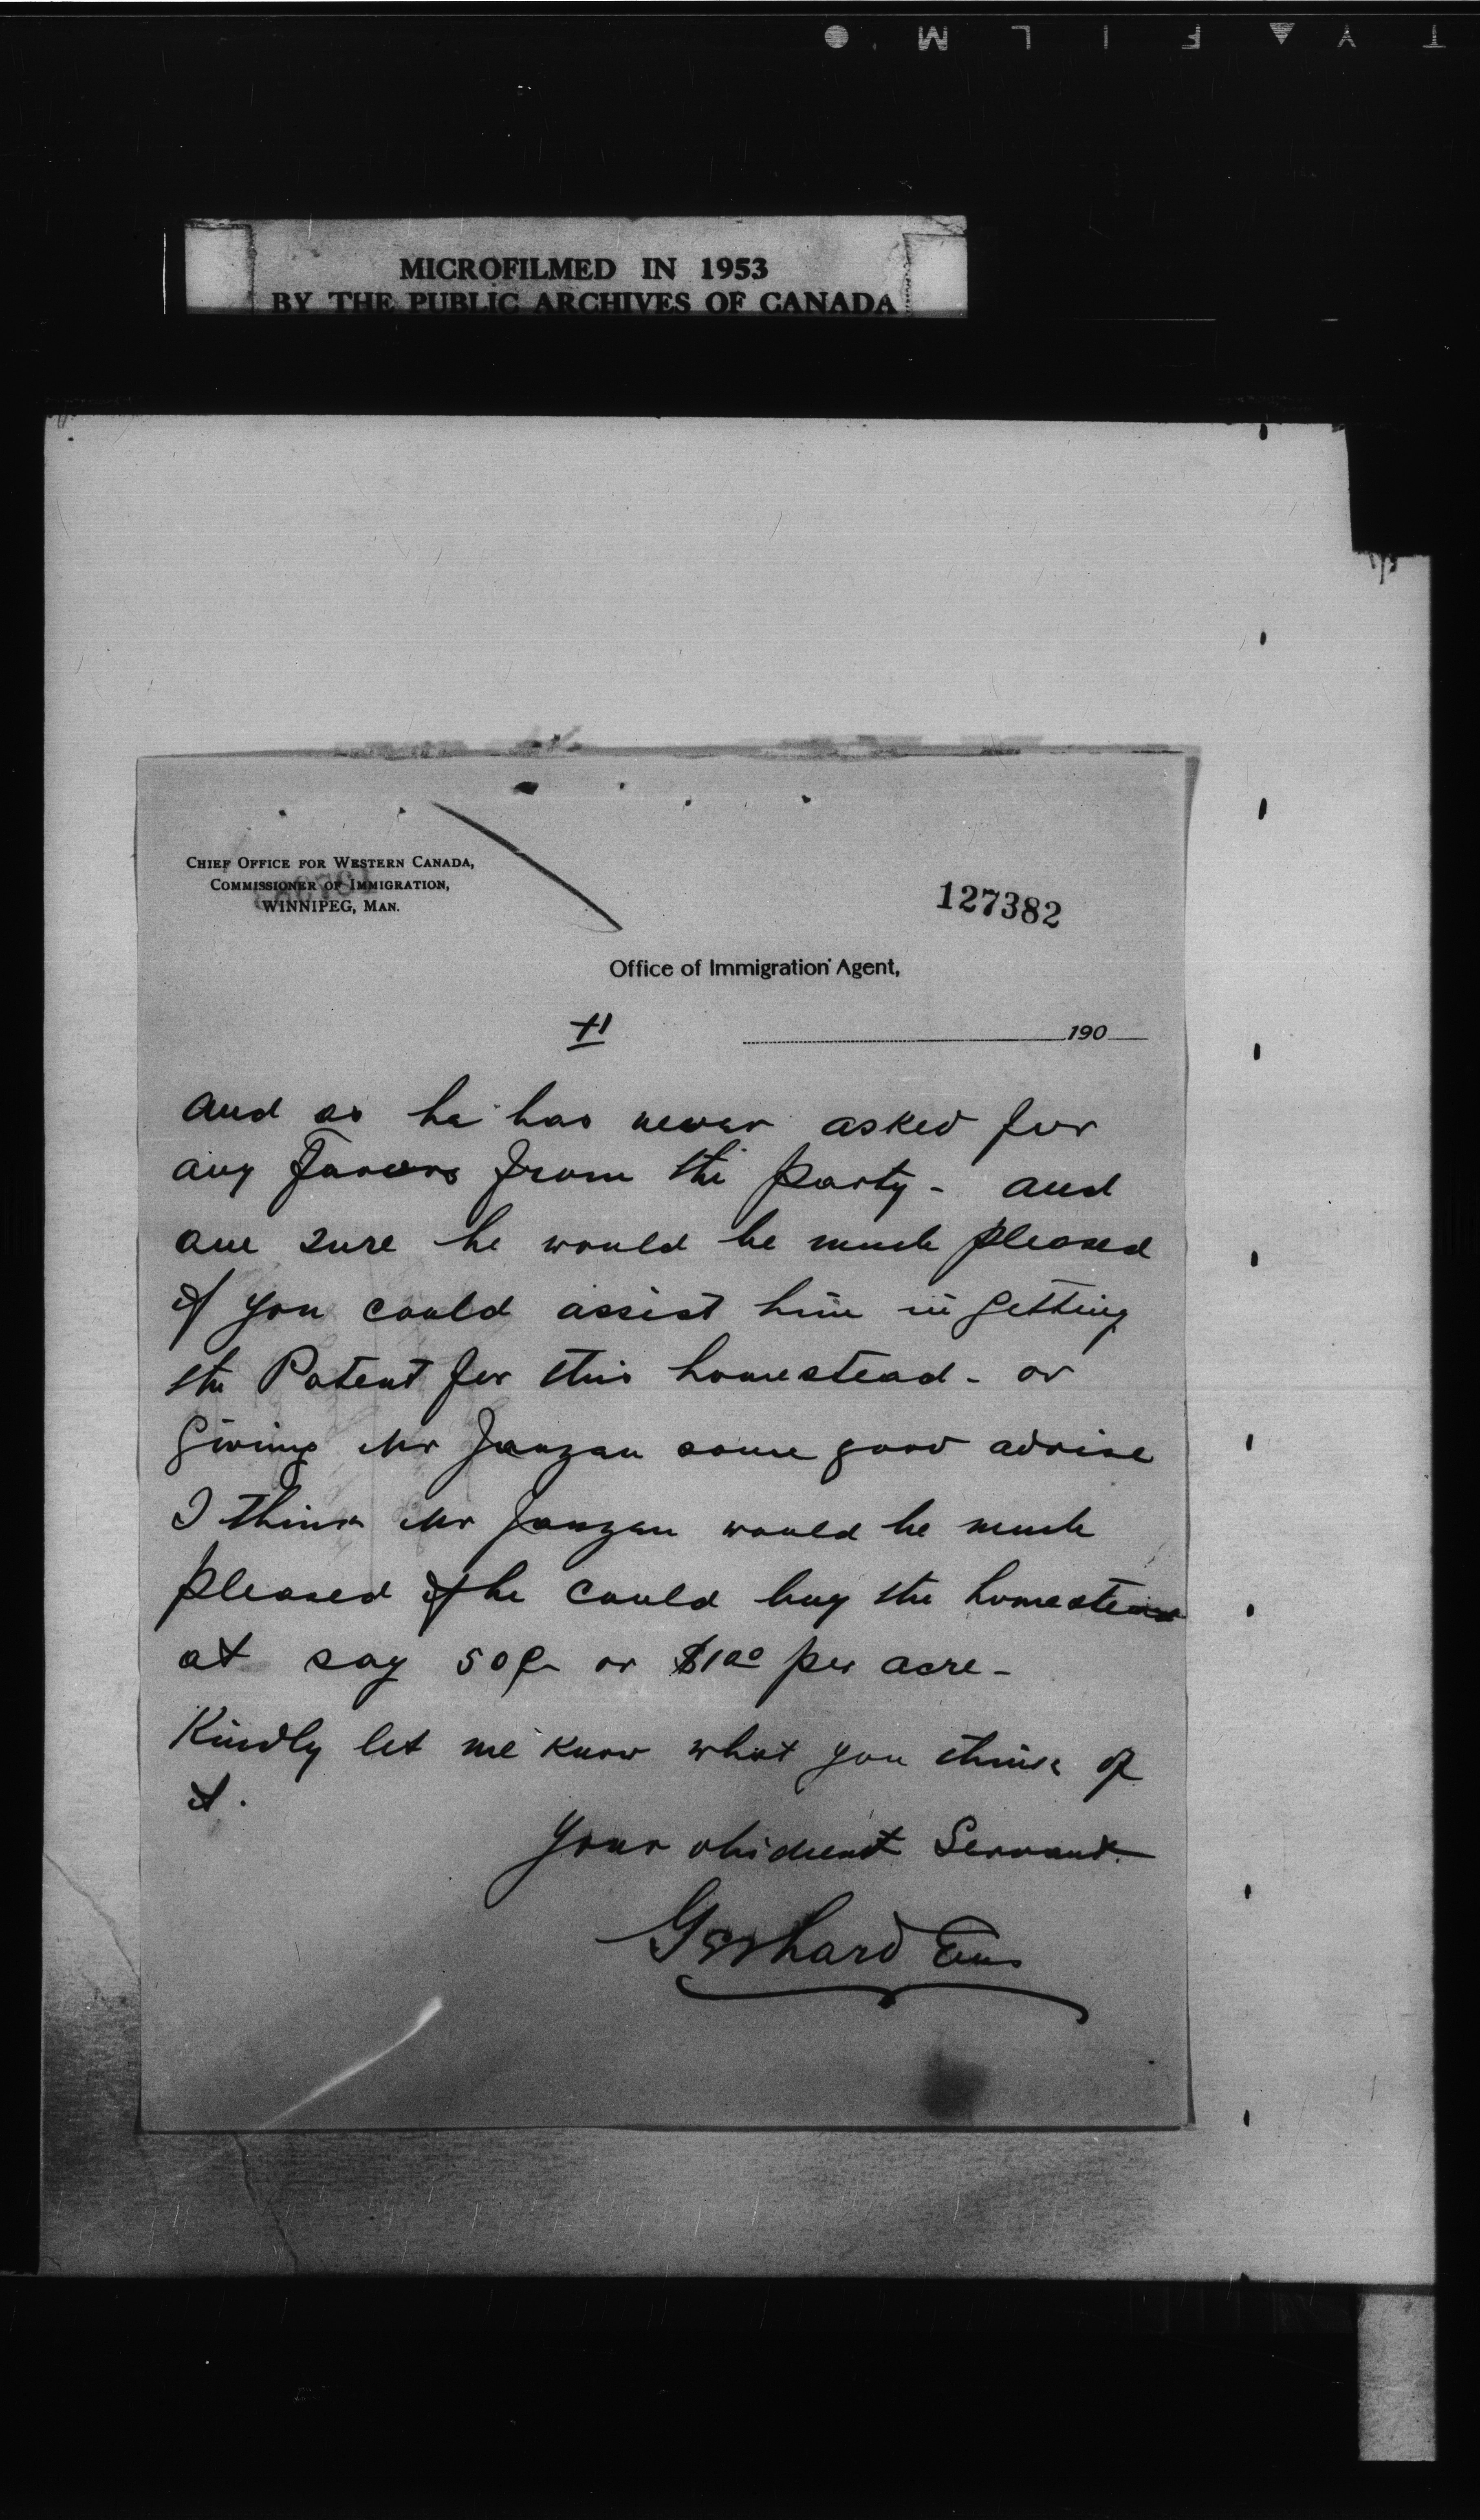 MICROFILMED IN 1953
BY THE PUBLIC ARCHIVES OF CANADA
CHIEF OFFICE FOR WESTERN CANADA,
COMMISSIONER OF IMMIGRATION,
WINNIPEG, MAN.
127382
Office of Immigration Agent,
190
and as he has never asked for
any Favors from the party - and
am sure he would be much pleased
if you could assist him in getting
the Patent for this homestead - or
Giving Mr Janzan some good advise
I think Mr Janzan would be much
pleased if he could buy the homestead
at say 50¢ or $1.00 per acre -
Kindly let me know what you think of
it.
Your obidient Servant
Gerhard Ens